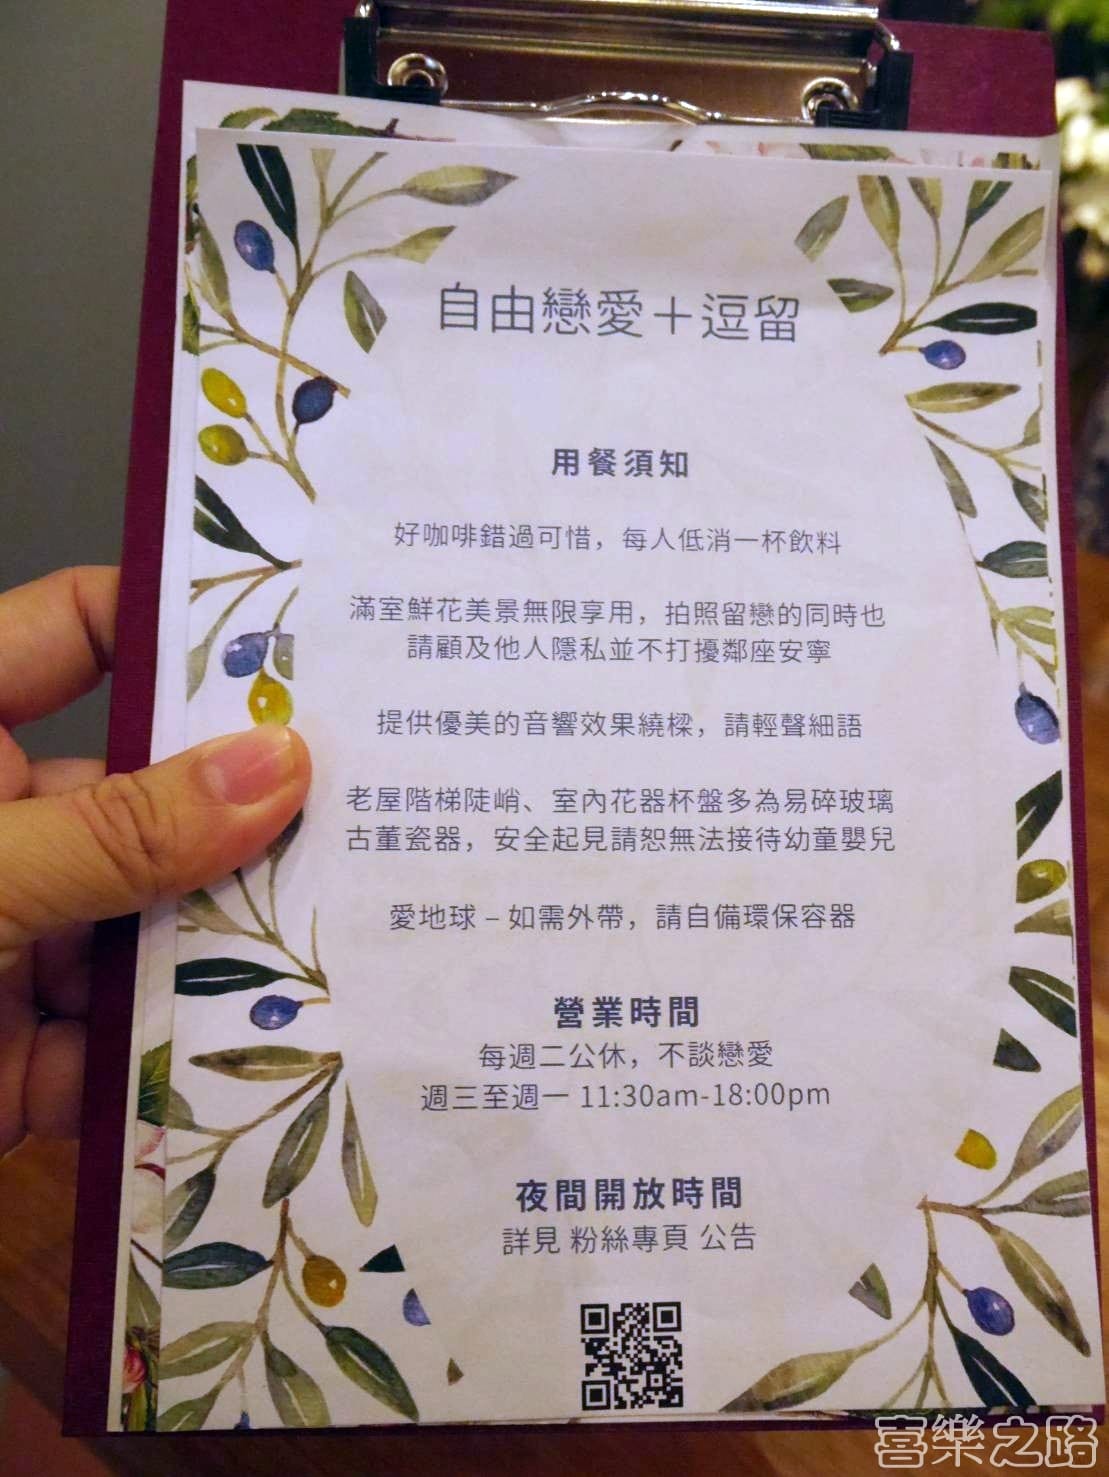 自由戀愛＋逗留
用餐須知
好咖啡錯過可惜，每人低消一杯飲料
滿室鮮花美景無限享用，拍照留戀的同時也
請顧及他人隱私並不打擾鄰座安寧
提供優美的音響效果繞樑，請輕聲細語
老屋階梯陡峭、室內花器杯盤多為易碎玻璃
古董瓷器，安全起見請恕無法接待幼童嬰兒
愛地球 – 如需外帶，請自備環保容器
營業時間
每週二公休，不談戀愛
週三至週一 11:30am-18:00pm
夜間開放時間
詳見 粉絲專頁 公告
喜樂之路